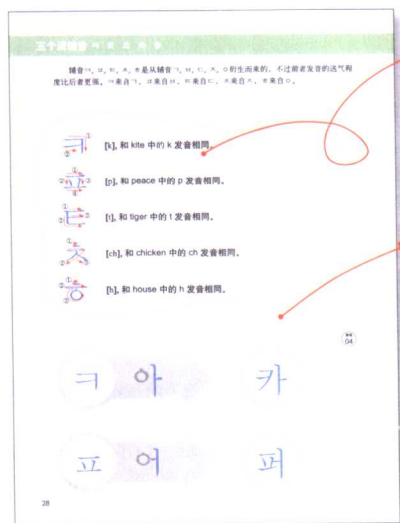 五个辅音ㅋㅍㅌㅊㅎ
辅音ㅋ, ㅍ, ㅌ, ㅊ, ㅎ是从辅音ㄱ, ㅂ, ㄷ, ㅈ, ㅇ衍生而来的，不过前者发音的送气程
度比后者更强。ㅋ来自ㄱ，ㅍ来自ㅂ，ㅌ来自ㄷ，ㅊ来自ㅈ，ㅎ来自ㅇ。
① ② ㅋ [k], 和 kite 中的 k 发音相同。
① ② ③ ④ ㅍ [p], 和 peace 中的 p 发音相同。
① ② ③ ㅌ [t], 和 tiger 中的 t 发音相同。
① ② ③ ㅊ [ch], 和 chicken 中的 ch 发音相同。
① ② ③ ㅎ [h], 和 house 中的 h 发音相同。
04
ㅋ 아 카
ㅍ 어 퍼
28